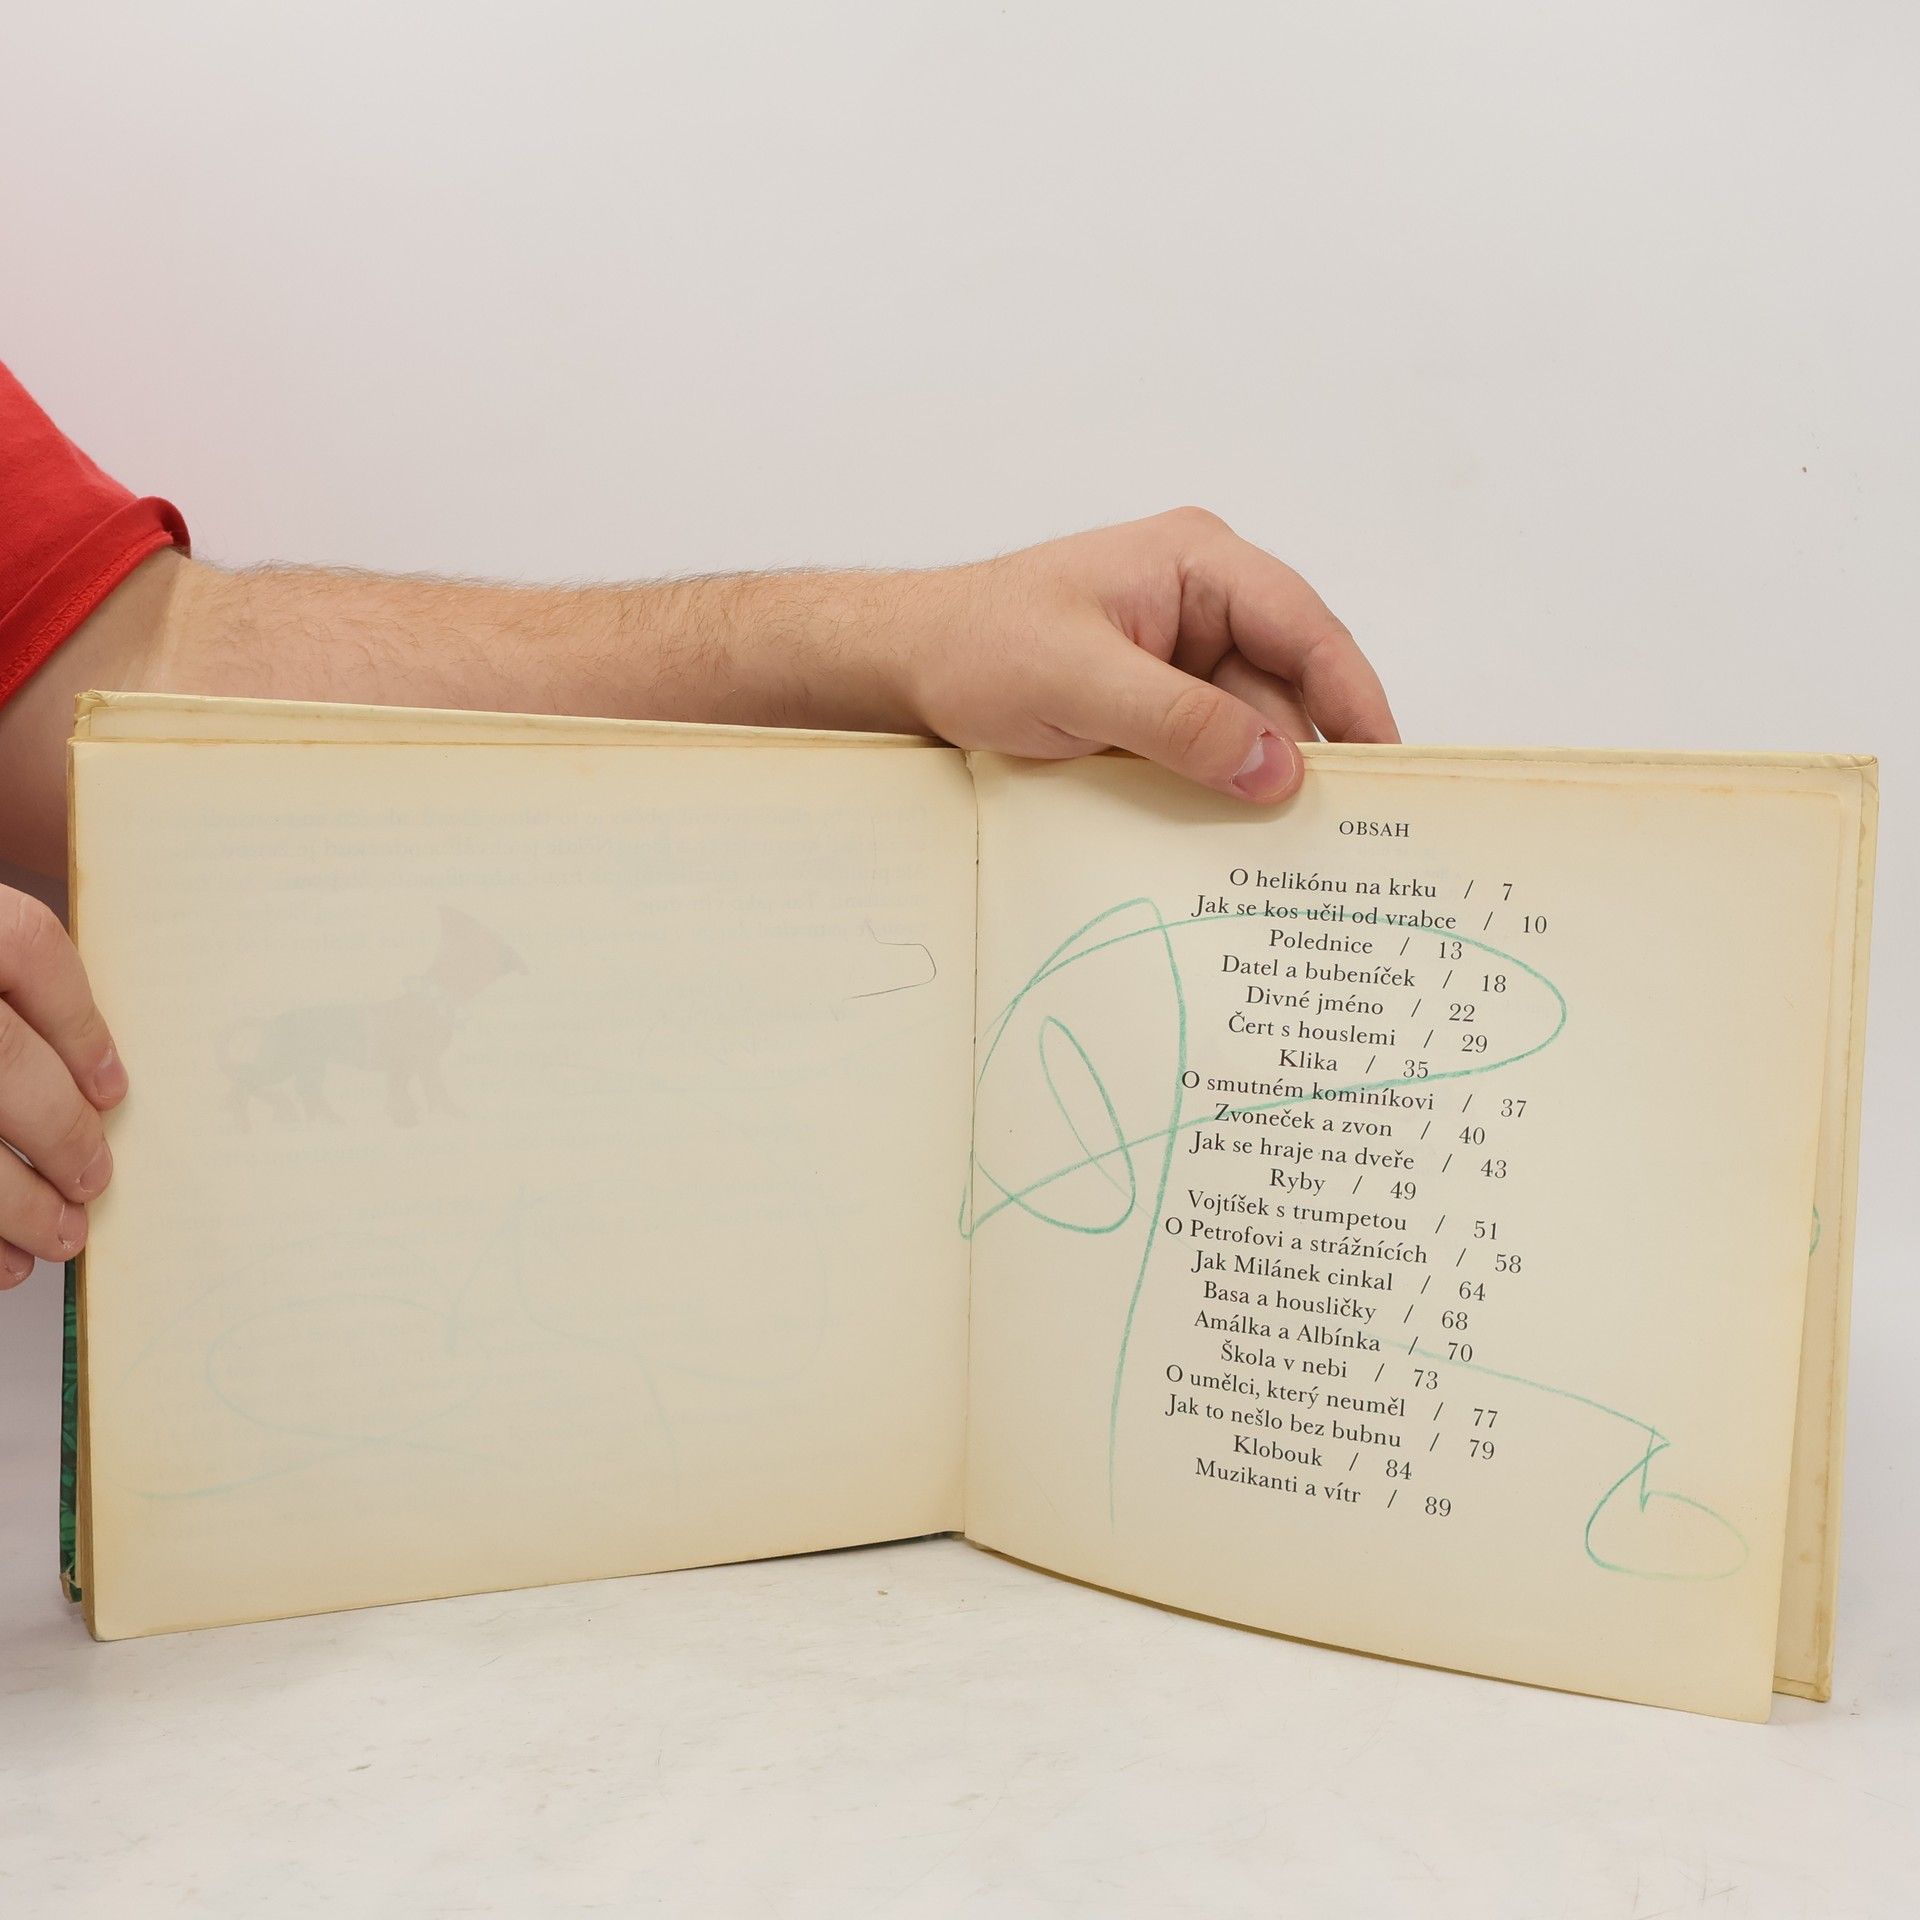 OBSAH
O helikónu na krku / 7
Jak se kos učil od vrabce / 10
Polednice / 13
Datel a bubeníček / 18
Divné jméno / 22
Čert s houslemi / 29
Klika / 35
O smutném kominíkovi / 37
Zvoneček a zvon / 40
Jak se hraje na dveře / 43
Ryby / 49
Vojtíšek s trumpetou / 51
O Petrofovi a strážnících / 58
Jak Milánek cinkal / 64
Basa a housličky / 68
Amálka a Albínka / 70
Škola v nebi / 73
O umělci, který neuměl / 77
Jak to nešlo bez bubnu / 79
Klobouk / 84
Muzikanti a vítr / 89